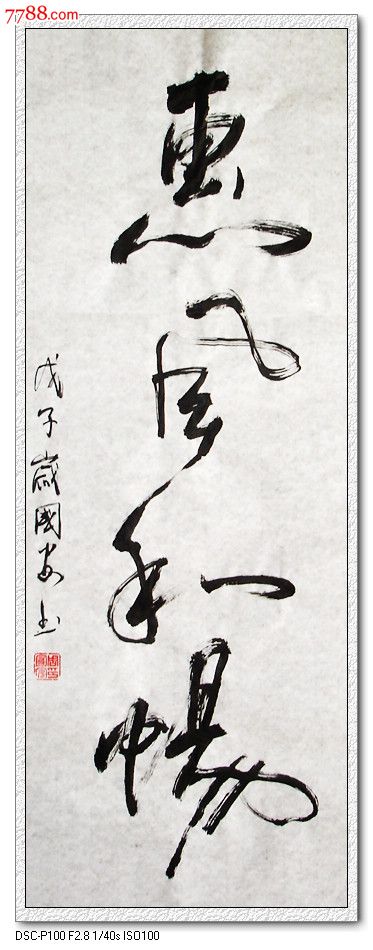 7788.com
惠风和畅
戊子岁國安书
DSC-P100 F2.8 1/40s ISO100